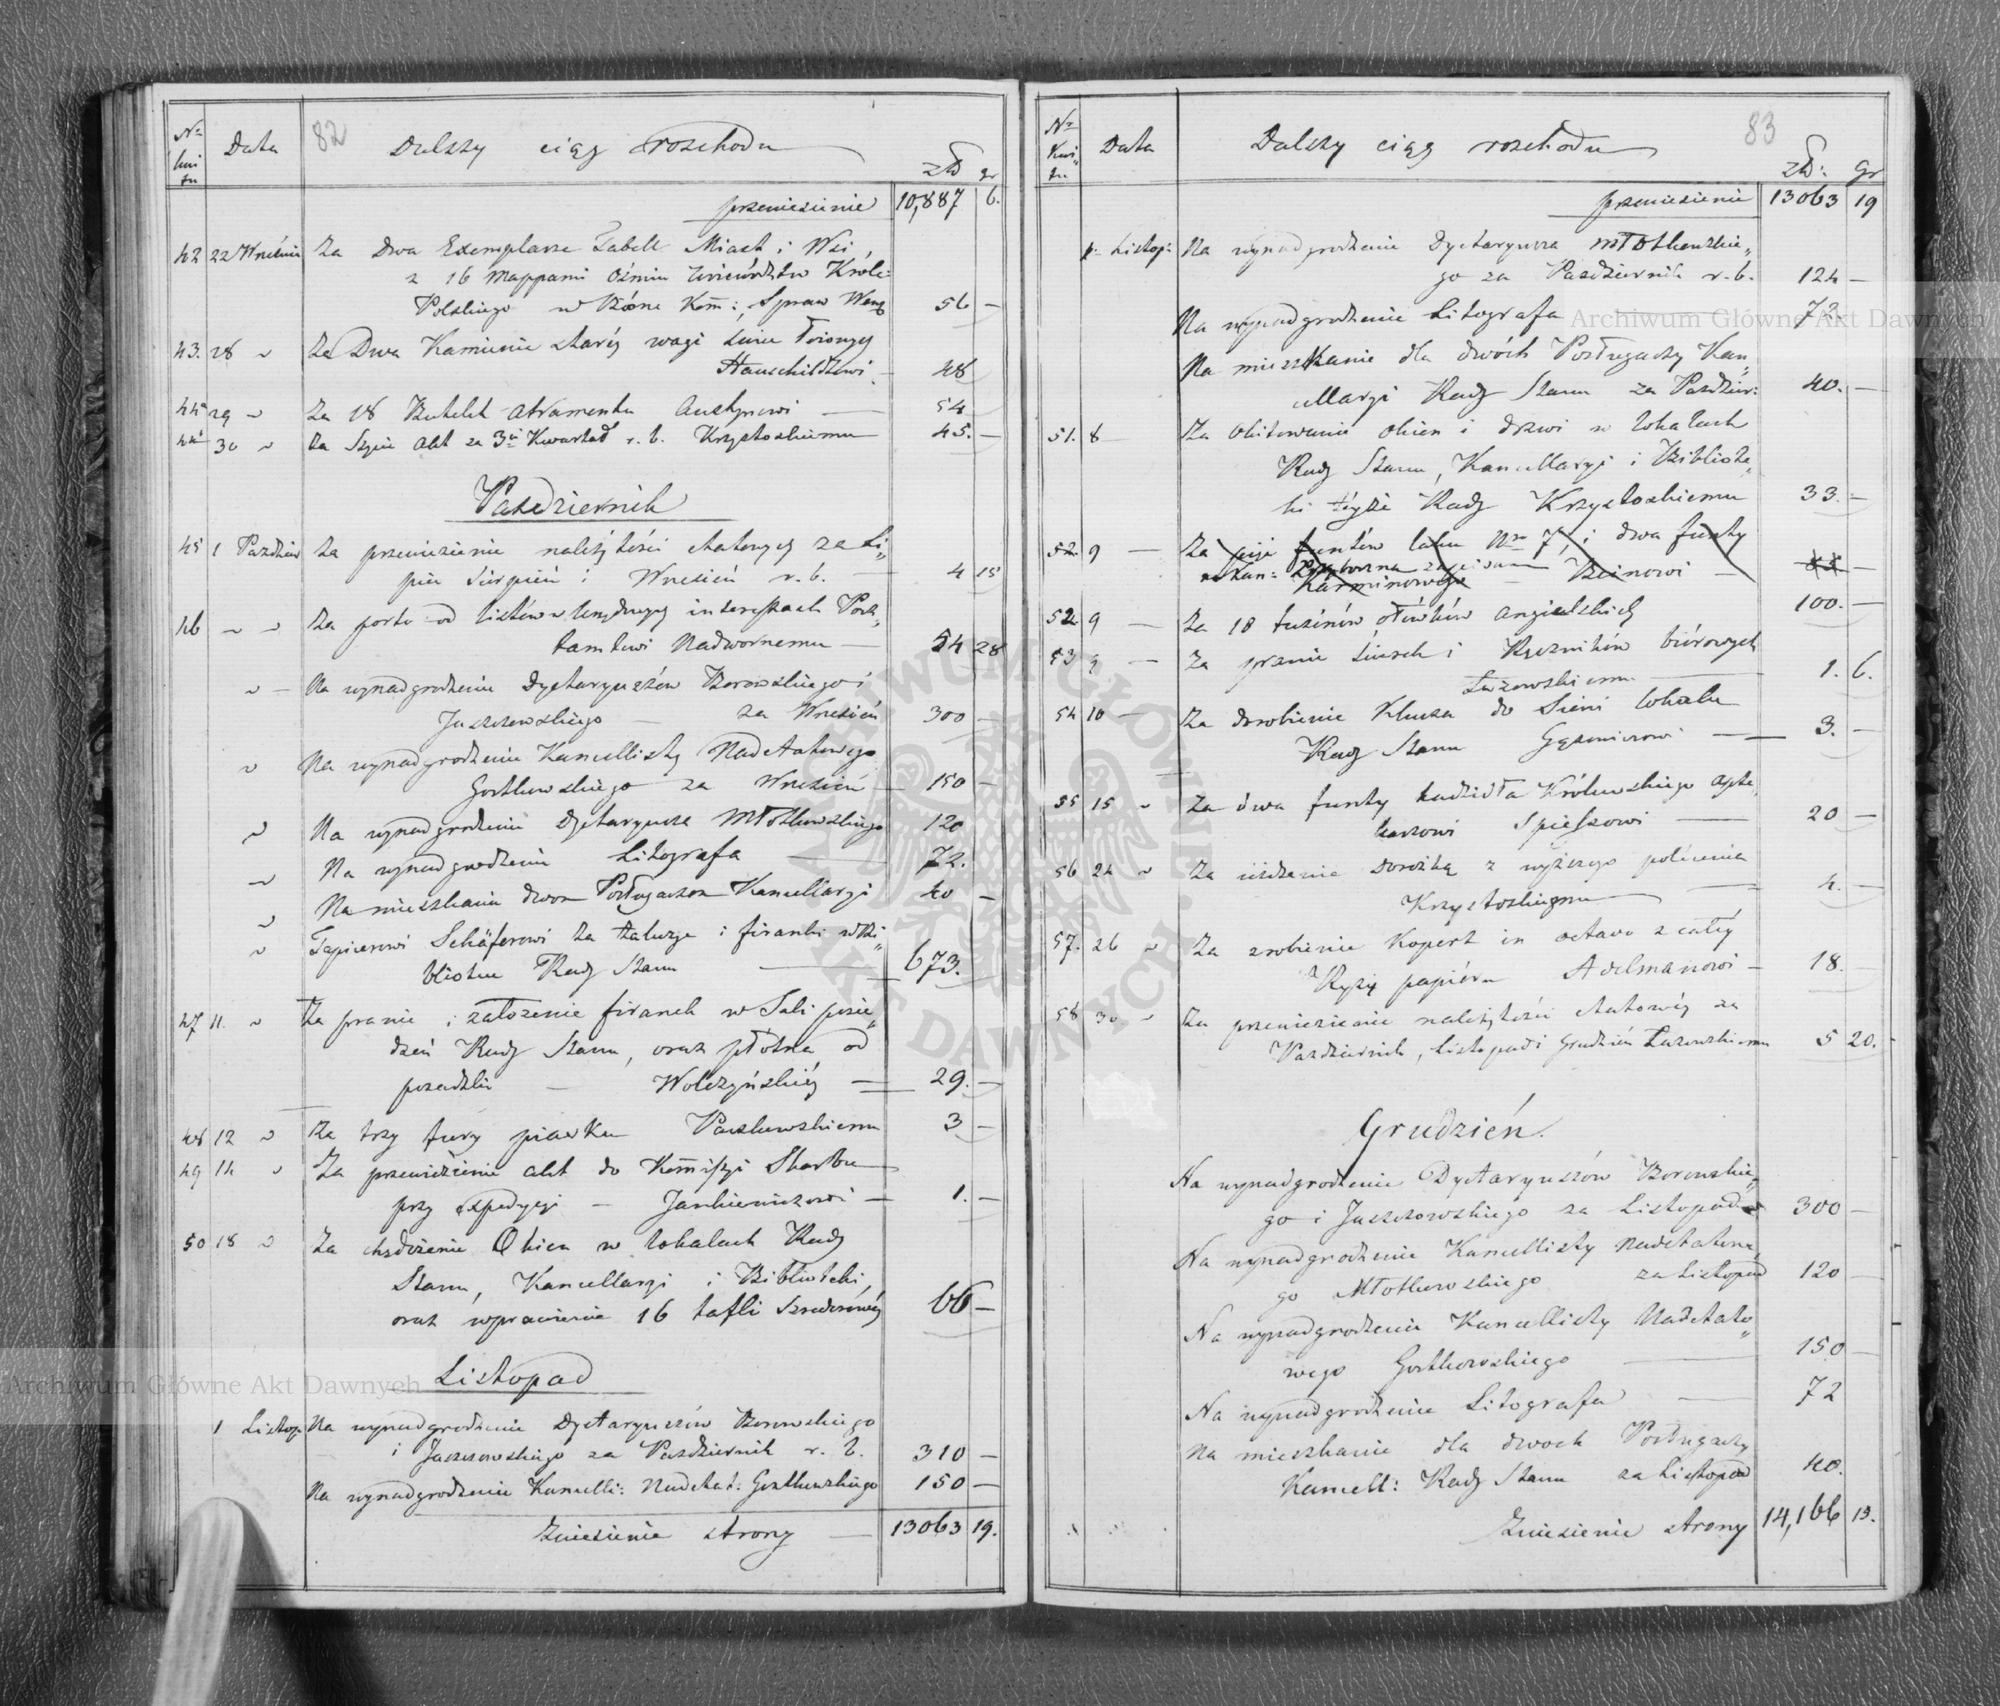 82
Nro kwitu Data Dalszy ciąg rozchodu złp gr
przeniesienie 10,887 6.
42 22 Wrześnie Za dwa Exemplarze Tabell Miast i Wsi
z 16 Mappami Ośmiu Województw Króle:
Polskiego w Biórze Kom: Spraw Wew 56 —
43. 28 " Za Dwa Kamienie starej wagi świec łoiowych
Hauschildtowi 48
44 29 " Za 18 Butelek atramentu Austynowi — 54
44 30 " Za Szycie akt za 3ci Kwartał r. b. Krzyżtoskiemu 45. —
Pazdziernik
45 1 Pazdzier Za przeniesienie należytości etatowych za Li„
piec Sierpień i Wrzesień r. b. — 4 15
46 " " Za porto od listów w urzędowych interessach Pocz„
tamtowi Nadwornemu — 54 28
" — Na wynadgrodzenie Dyetaryuszów Borowskiego i
Juszczowskiego — za Wrzesień 300 —
" Na wynadgrodzenie Kancellisty Nadetatowego
Gostkowskiego za Wrzesień — 150 —
" Na wynadgrodzenie Dyetaryusza Młotkowskiego 120
" Na wynadgrodzenie Litografa — 72.
" Na mieszkanie dwom Posługaczom Kancellaryi 40 —
" Tapicerowi Schäferowi za żaluzye i firanki w Bi„
bliotece Rady Stanu — 673. —
47 11. " Za pranie i założenie firanek w Sali posie„
dzeń Rady Stanu, oraz płótna od
posadzki — Wolczyńskiéj — 29. —
48 12 " Za trzy fury piasku Paszkowskiemu 3 —
49 14 " Za przewiezienie akt do Kommissyi Skarbu
przy expedycyi — Jankiewiczowi — 1. —
50 18 " Za Okien w lokalach Rady
Stanu, Kancellaryi i Biblioteki,
oraz wprawienie 16 tafli Szrederowéj 66 —
Listopad
1 Listop. Na wynadgrodzenie Dyetaryuszów Borowskiego
i Juszczowskiego za Pazdziernik r. b. 310 —
Na wynadgrodzenie Kancelli: Nadetat: Gostkowskiego 150 —
Zniesienie strony — 13063 19.
83
Nro Kwitu Data Dalszy ciąg rozchodu złp: gr
przeniesienie 13063 19
1. Listop: Na wynadgrodzenie Dyetaryusza Młotkowskie„
go za Pazdziernik r. b. 124 —
Na wynadgrodzenie Litografa — 72. —
Na mieszkanie dla dwóch Posługaczy Kan„
cellaryi Rady Stanu za Pazdzier: 40. —
51. 8 — Za Okitowanie okien i drzwi w lokalach
Rady Stanu, Kancellaryi i Bibliote„
ki téyże Rady Krzyżtoskiemu 33. —
52 9 — Za funtów laku Nro 7, i dwa funty
Karminowego — Beinowi —
52 9 — Za 10 tuzinów ołówków angielskich 100. —
53 9 — Za pranie ścierek i Ręczników biórowych
Łazowskiemu 1. 6.
54 10 — Za dorobienie Klucza do Sieni lokalu
Rady Stanu — 3. —
55 15 " Za dwa funty kadzidła Królewskiego Apte„
karzowi Spiessowi — 20 —
56 24 " Za jeżdzenie dorożką z wyższego polecenia
Krzyżtoskiemu — 4. —
57. 26 " Za zrobienie Kopert in octavo z całéj
Ryzy papiéru Adelmanowi — 18. —
58 30 " Za przeniesienie należytości etatowéj za
Pazdziernik, Listopad i Grudzień Łazowskiemu 5 20.
Grudzień.
Na wynadgrodzenie Dyetaryuszów Borowskie„
go i Juszczowskiego za Listopad 300 —
Na wynadgrodzenie Kancellisty Nadetatowe„
go Młotkowskiego za Listopad 120 —
Na wynadgrodzenie Kancellisty Nadetato„
wego Gostkowskiego — 150 —
Na wynadgrodzenie Litografa — 72
Na mieszkanie dla dwoch Posługaczy
Kancell: Rady Stanu za Listopad 40.
Zniesienie strony 14,166 15.
Archiwum Główne Akt Dawnych
Archiwum Główne Akt Dawnych
ARCHIWUM GŁÓWNE AKT DAWNYCH